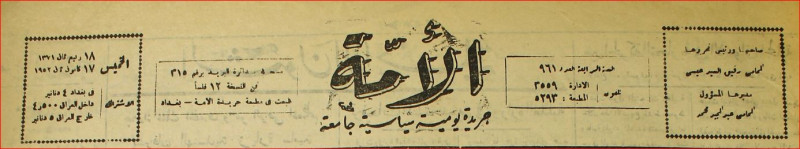 صاحبها ورئيس تحريرها
المحامي رفيق السيد عيسى
مديرها المسؤول
المحامي عبد المجيد محمد
السنة الرابعة العدد ٩٦١
تلفون
الادارة ٣٥٥٩
المطبعة : ٥٢٩٣
الأمة
جريدة يومية سياسية جامعة
دائرة البريد برقم ٣١٥
ثمن النسخة ١٢ فلساً
طبعت في مطبعة جريدة الامة - بغداد
الخميس
١٨ ربيع ثاني ١٣٧١
١٧ كانون ثاني ١٩٥٢
الاشتراك
في بغداد ٤ دنانير
داخل العراق ٥٠٠ر٤
خارج العراق ٥ دنانير